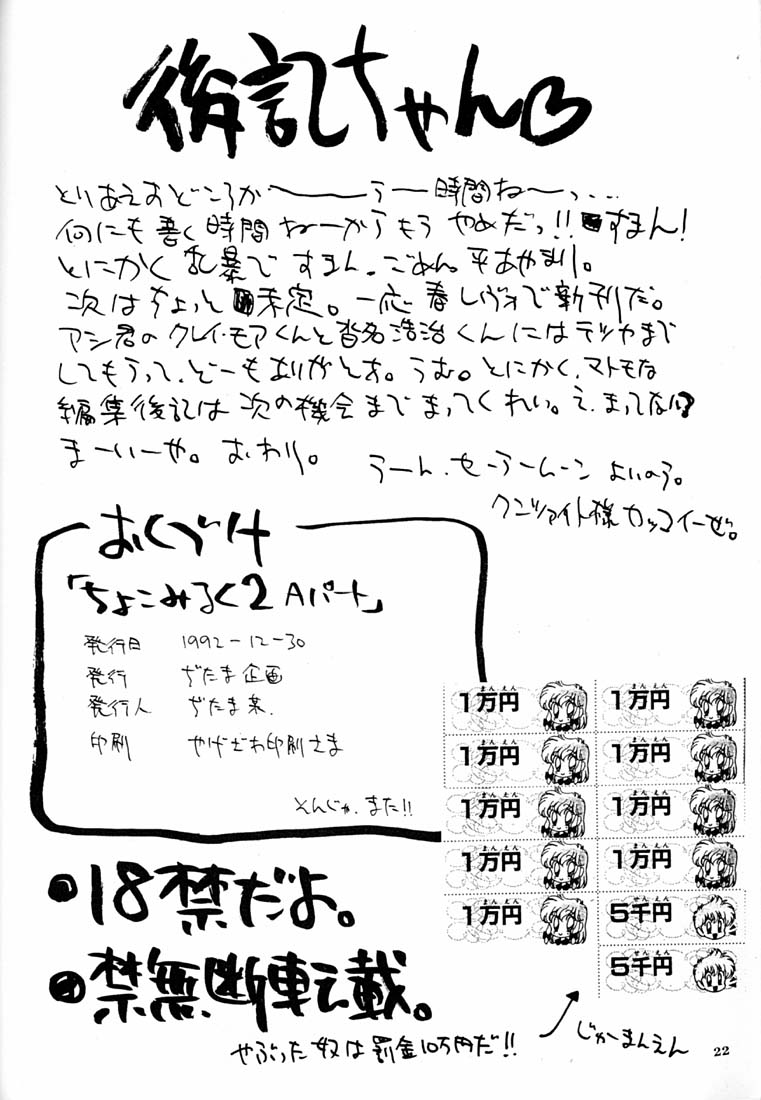 後記ちゃん♡
とりあえおどころか〜〜うー時間ねーっ...
何にも書く時間ねーからもうやめだっ!!すまん!
とにかく乱暴ですまん。ごめん。平あやまり。
次はちょっと未定。一応春レヴォで新刊だ。
アシ君のクレイ・モアくんと沓名浩治くんにはテツヤまで
してもらって、どーもありがとお。うむ。とにかく、マトモな
編集後記は次の機会までまってくれい。え、まってない?
まーいーや。おわり。
うーん、セーラームーンよいのう。
クンツァイト様カッコイーぜ。
おくづけ
「ちょこみるく2 Aパート」
発行日 1992-12-30
発行 ぢたま企画
発行人 ぢたま某.
印刷 やげざわ印刷さま
そんじゃ、また!!
1万円 1万円
1万円 1万円
1万円 1万円
1万円 1万円
1万円 5千円
5千円
18禁だよ。
禁無断転載。
やぶった奴は罰金10万円だ!!
じゅーまんえん
22